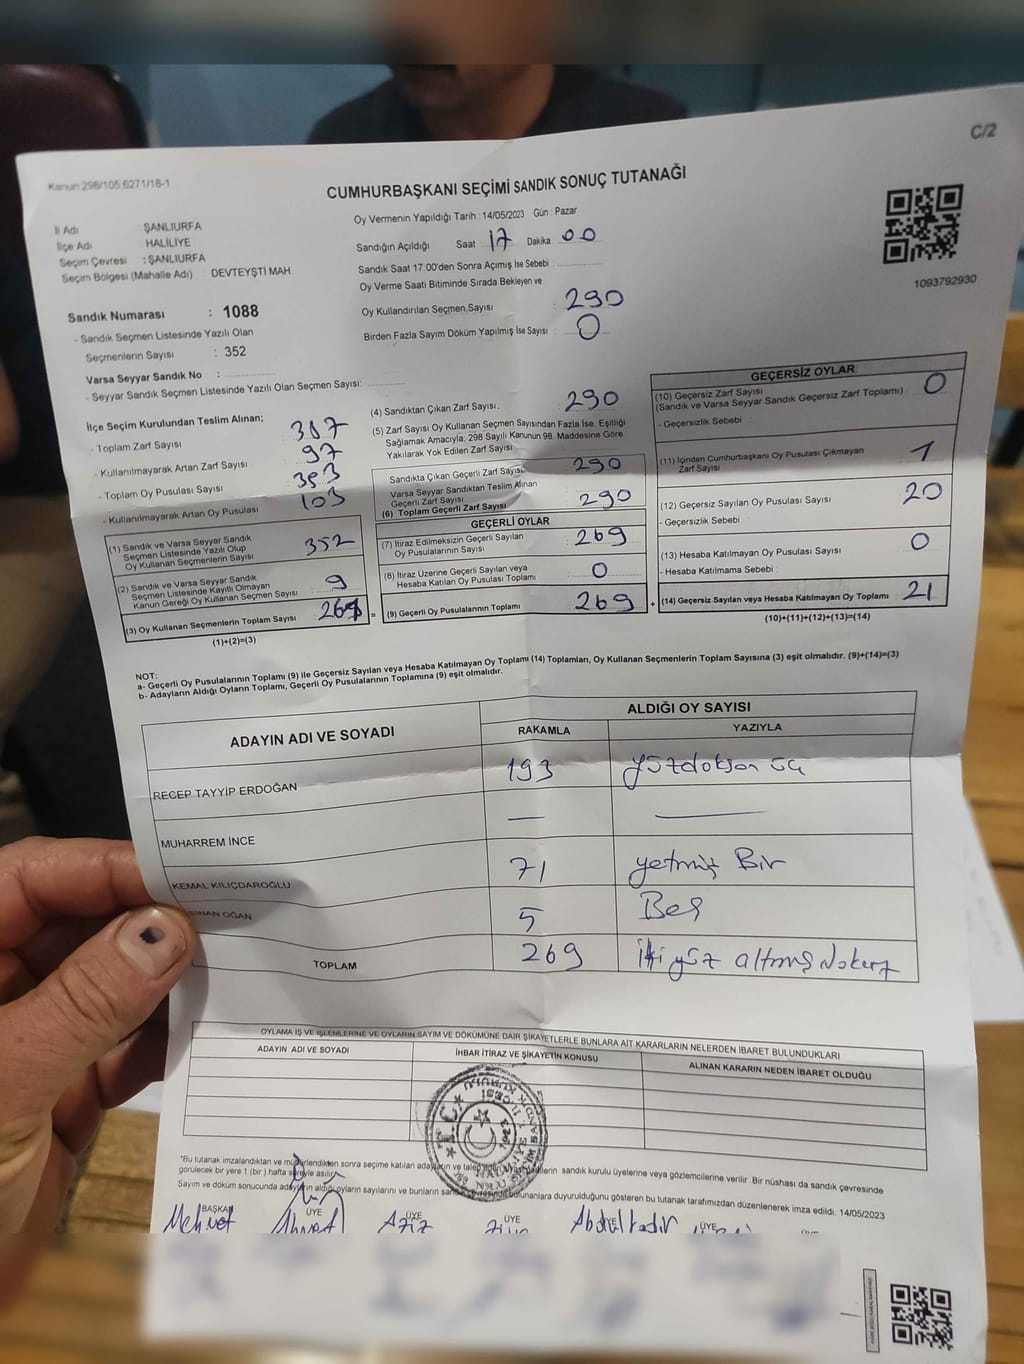 C/2
Kanun:298/105.6271/18-1
CUMHURBAŞKANI SEÇİMİ SANDIK SONUÇ TUTANAĞI
İl Adı ŞANLIURFA
İlçe Adı HALİLİYE
Seçim Çevresi : ŞANLIURFA
Seçim Bölgesi (Mahalle Adı) : DEVTEYŞTİ MAH.
Oy Vermenin Yapıldığı Tarih : 14/05/2023 Gün : Pazar
Sandığın Açıldığı Saat : 17 Dakika : 00
Sandık Saat 17:00'den Sonra Açımış İse Sebebi :
Oy Verme Saati Bitiminde Sırada Bekleyen ve
Oy Kullandırılan Seçmen Sayısı : 290
Birden Fazla Sayım Döküm Yapılmış İse Sayısı : 0
1093792930
Sandık Numarası : 1088
- Sandık Seçmen Listesinde Yazılı Olan
Seçmenlerin Sayısı : 352
Varsa Seyyar Sandık No :
- Seyyar Sandık Seçmen Listesinde Yazılı Olan Seçmen Sayısı:
İlçe Seçim Kurulundan Teslim Alınan;
- Toplam Zarf Sayısı : 387
- Kullanılmayarak Artan Zarf Sayısı : 97
- Toplam Oy Pusulası Sayısı : 393
- Kullanılmayarak Artan Oy Pusulası : 103
(1) Sandık ve Varsa Seyyar Sandık
Seçmen Listesinde Yazılı Olup
Oy Kullanan Seçmenlerin Sayısı : 352
(2) Sandık ve Varsa Seyyar Sandık
Seçmen Listesinde Kayıtlı Olmayan
Kanun Gereği Oy Kullanan Seçmen Sayısı : 9
(3) Oy Kullanan Seçmenlerin Toplam Sayısı :
(1)+(2)=(3)
(4) Sandıktan Çıkan Zarf Sayısı : 290
(5) Zarf Sayısı Oy Kullanan Seçmen Sayısından Fazla İse, Eşitliği
Sağlamak Amacıyla; 298 Sayılı Kanunun 98. Maddesine Göre
Yakılarak Yok Edilen Zarf Sayısı :
Sandıkta Çıkan Geçerli Zarf Sayısı : 290
Varsa Seyyar Sandıktan Teslim Alınan
Geçerli Zarf Sayısı
(6) Toplam Geçerli Zarf Sayısı : 290
GEÇERLİ OYLAR
(7) İtiraz Edilmeksizin Geçerli Sayılan
Oy Pusulalarının Sayısı : 269
(8) İtiraz Üzerine Geçerli Sayılan veya
Hesaba Katılan Oy Pusulası Toplamı : 0
(9) Geçerli Oy Pusulalarının Toplamı : 269
GEÇERSİZ OYLAR
(10) Geçersiz Zarf Sayısı : 0
(Sandık ve Varsa Seyyar Sandık Geçersiz Zarf Toplamı)
- Geçersizlik Sebebi
(11) İçinden Cumhurbaşkanı Oy Pusulası Çıkmayan
Zarf Sayısı : 1
(12) Geçersiz Sayılan Oy Pusulası Sayısı : 20
- Geçersizlik Sebebi
(13) Hesaba Katılmayan Oy Pusulası Sayısı : 0
- Hesaba Katılmama Sebebi :
(14) Geçersiz Sayılan veya Hesaba Katılmayan Oy Toplamı : 21
(10)+(11)+(12)+(13)=(14)
NOT:
a- Geçerli Oy Pusulalarının Toplamı (9) ile Geçersiz Sayılan veya Hesaba Katılmayan Oy Toplamı (14) Toplamları, Oy Kullanan Seçmenlerin Toplam Sayısına (3) eşit olmalıdır. (9)+(14)=(3)
b- Adayların Aldığı Oyların Toplamı, Geçerli Oy Pusulalarının Toplamına (9) eşit olmalıdır.
ADAYIN ADI VE SOYADI ALDIĞI OY SAYISI
RAKAMLA YAZIYLA
RECEP TAYYİP ERDOĞAN 193 yüzdoksan üç
MUHARREM İNCE — —
KEMAL KILIÇDAROĞLU 71 yetmiş Bir
SİNAN OĞAN 5 Beş
TOPLAM 269 iki yüz altmış dokuz
OYLAMA İŞ VE İŞLEMLERİNE VE OYLARIN SAYIM VE DÖKÜMÜNE DAİR ŞİKAYETLERLE BUNLARA AİT KARARLARIN NELERDEN İBARET BULUNDUKLARI
ADAYIN ADI VE SOYADI İHBAR İTİRAZ VE ŞİKAYETİN KONUSU ALINAN KARARIN NEDEN İBARET OLDUĞU
*Bu tutanak imzalandıktan ve mühürlendikten sonra seçime katılan adayların ve talep eden siyasi partilerin sandık kurulu üyelerine veya gözlemcilerine verilir. Bir nüshası da sandık çevresinde
görülecek bir yere 1 (bir) hafta süreyle asılır.
Sayım ve döküm sonucunda adayların aldığı oyların sayılarını ve bunların sandık çevresinde bulunanlara duyurulduğunu gösteren bu tutanak tarafımızdan düzenlenerek imza edildi. 14/05/2023
BAŞKAN ÜYE ÜYE ÜYE ÜYE ÜYE
Mehmet Ahmet Aziz Abdulkadir